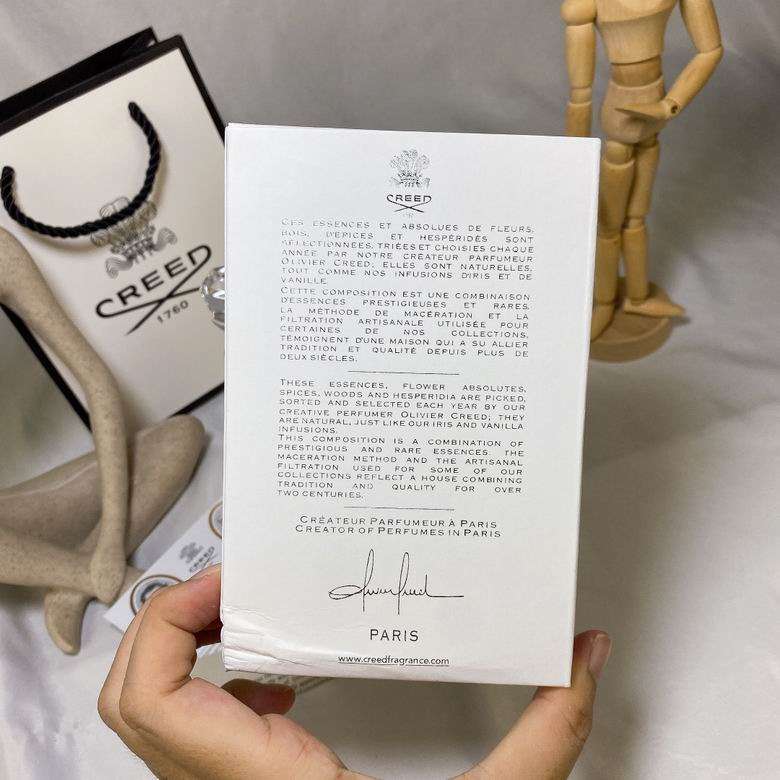 CREED
1760
CREED
CES ESSENCES ET ABSOLUES DE FLEURS,
BOIS, D'ÉPICES ET HESPÉRIDÉS SONT
SÉLECTIONNÉES, TRIÉES ET CHOISIES CHAQUE
ANNÉE PAR NOTRE CRÉATEUR PARFUMEUR
OLIVIER CREED; ELLES SONT NATURELLES,
TOUT COMME NOS INFUSIONS D'IRIS ET DE
VANILLE.
CETTE COMPOSITION EST UNE COMBINAISON
D'ESSENCES PRESTIGIEUSES ET RARES.
LA MÉTHODE DE MACÉRATION ET LA
FILTRATION ARTISANALE UTILISÉE POUR
CERTAINES DE NOS COLLECTIONS,
TÉMOIGNENT D'UNE MAISON QUI A SU ALLIER
TRADITION ET QUALITÉ DEPUIS PLUS DE
DEUX SIÈCLES.
THESE ESSENCES, FLOWER ABSOLUTES,
SPICES, WOODS AND HESPERIDIA ARE PICKED,
SORTED AND SELECTED EACH YEAR BY OUR
CREATIVE PERFUMER OLIVIER CREED; THEY
ARE NATURAL, JUST LIKE OUR IRIS AND VANILLA
INFUSIONS.
THIS COMPOSITION IS A COMBINATION OF
PRESTIGIOUS AND RARE ESSENCES. THE
MACERATION METHOD AND THE ARTISANAL
FILTRATION USED FOR SOME OF OUR
COLLECTIONS REFLECT A HOUSE COMBINING
TRADITION AND QUALITY FOR OVER
TWO CENTURIES.
CRÉATEUR PARFUMEUR À PARIS
CREATOR OF PERFUMES IN PARIS
PARIS
www.creedfragrance.com
CREED